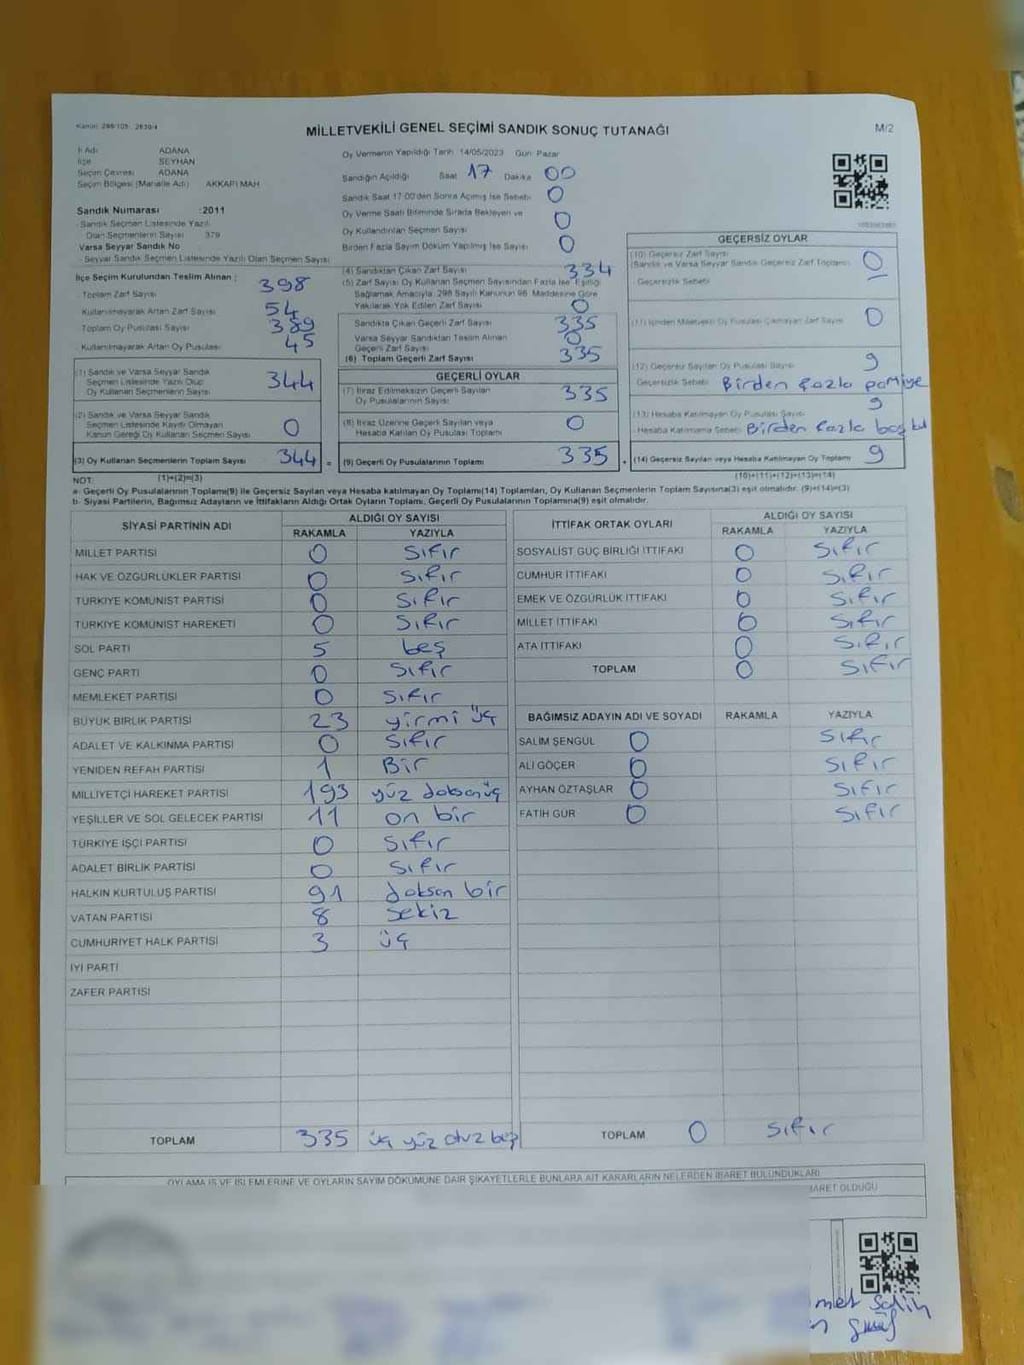 Kanun: 298/105 2839/4
MİLLETVEKİLİ GENEL SEÇİMİ SANDIK SONUÇ TUTANAĞI
M/2
İl Adı ADANA
İlçe SEYHAN
Seçim Çevresi ADANA
Seçim Bölgesi (Mahalle Adı) AKKAPI MAH
Sandık Numarası :2011
- Sandık Seçmen Listesinde Yazılı
Olan Seçmenlerin Sayısı 379
Varsa Seyyar Sandık No
- Seyyar Sandık Seçmen Listesinde Yazılı Olan Seçmen Sayısı
Oy Vermenin Yapıldığı Tarih 14/05/2023 Gün Pazar
Sandığın Açıldığı Saat 17 Dakika 00
Sandık Saat 17:00'den Sonra Açılmış İse Sebebi 0
Oy Verme Saati Bitiminde Sırada Bekleyen ve
Oy Kullandırılan Seçmen Sayısı 0
Birden Fazla Sayım Döküm Yapılmış İse Sayısı 0
İlçe Seçim Kurulundan Teslim Alınan ;
- Toplam Zarf Sayısı 398
- Kullanılmayarak Artan Zarf Sayısı 54
- Toplam Oy Pusulası Sayısı 389
- Kullanılmayarak Artan Oy Pusulası 45
(1) Sandık ve Varsa Seyyar Sandık
Seçmen Listesinde Yazılı Olup
Oy Kullanan Seçmenlerin Sayısı 344
(2) Sandık ve Varsa Seyyar Sandık
Seçmen Listesinde Kaydı Olmayan
Kanun Gereği Oy Kullanan Seçmen Sayısı 0
(3) Oy Kullanan Seçmenlerin Toplam Sayısı 344 =
(1)+(2)=(3)
(4) Sandıktan Çıkan Zarf Sayısı 334
(5) Zarf Sayısı Oy Kullanan Seçmen Sayısından Fazla İse, Eşitliği
Sağlamak Amacıyla, 298 Sayılı Kanunun 98. Maddesine Göre
Yakılarak Yok Edilen Zarf Sayısı 0
Sandıkta Çıkan Geçerli Zarf Sayısı 335
Varsa Seyyar Sandıktan Teslim Alınan
Geçerli Zarf Sayısı 0
(6) Toplam Geçerli Zarf Sayısı 335
GEÇERLİ OYLAR
(7) İtiraz Edilmeksizin Geçerli Sayılan
Oy Pusulalarının Sayısı 335
(8) İtiraz Üzerine Geçerli Sayılan veya
Hesaba Katılan Oy Pusulası Toplamı 0
(9) Geçerli Oy Pusulalarının Toplamı 335 +
GEÇERSİZ OYLAR
(10) Geçersiz Zarf Sayısı
(Sandık ve Varsa Seyyar Sandık Geçersiz Zarf Toplamı) 0
- Geçersizlik Sebebi
(11) İçinden Milletvekili Oy Pusulası Çıkmayan Zarf Sayısı 0
(12) Geçersiz Sayılan Oy Pusulası Sayısı 9
Geçersizlik Sebebi Birden fazla partiye
9
(13) Hesaba Katılmayan Oy Pusulası Sayısı
Hesaba Katılmama Sebebi Birden fazla
(14) Geçersiz Sayılan veya Hesaba Katılmayan Oy Toplamı 9
(10)+(11)+(12)+(13)=(14)
NOT:
a- Geçerli Oy Pusulalarının Toplamı(9) ile Geçersiz Sayılan veya Hesaba katılmayan Oy Toplamı(14) Toplamları, Oy Kullanan Seçmenlerin Toplam Sayısına(3) eşit olmalıdır. (9)+(14)=(3)
b- Siyasi Partilerin, Bağımsız Adayların ve İttifakların Aldığı Ortak Oyların Toplamı, Geçerli Oy Pusulalarının Toplamına(9) eşit olmalıdır.
SİYASİ PARTİNİN ADI ALDIĞI OY SAYISI
RAKAMLA YAZIYLA
MİLLET PARTİSİ 0 Sıfır
HAK VE ÖZGÜRLÜKLER PARTİSİ 0 Sıfır
TÜRKİYE KOMÜNİST PARTİSİ 0 Sıfır
TÜRKİYE KOMÜNİST HAREKETİ 0 Sıfır
SOL PARTİ 5 beş
GENÇ PARTİ 0 Sıfır
MEMLEKET PARTİSİ 0 Sıfır
BÜYÜK BİRLİK PARTİSİ 23 yirmi üç
ADALET VE KALKINMA PARTİSİ 0 Sıfır
YENİDEN REFAH PARTİSİ 1 Bir
MİLLİYETÇİ HAREKET PARTİSİ 193 yüz doksanüç
YEŞİLLER VE SOL GELECEK PARTİSİ 11 on bir
TÜRKİYE İŞÇİ PARTİSİ 0 Sıfır
ADALET BİRLİK PARTİSİ 0 Sıfır
HALKIN KURTULUŞ PARTİSİ 91 doksan bir
VATAN PARTİSİ 8 Sekiz
CUMHURİYET HALK PARTİSİ 3 üç
İYİ PARTİ
ZAFER PARTİSİ
TOPLAM 335 üç yüz otuz beş
İTTİFAK ORTAK OYLARI ALDIĞI OY SAYISI
RAKAMLA YAZIYLA
SOSYALİST GÜÇ BİRLİĞİ İTTİFAKI 0 Sıfır
CUMHUR İTTİFAKI 0 Sıfır
EMEK VE ÖZGÜRLÜK İTTİFAKI 0 Sıfır
MİLLET İTTİFAKI 0 Sıfır
ATA İTTİFAKI 0 Sıfır
TOPLAM 0 Sıfır
BAĞIMSIZ ADAYIN ADI VE SOYADI RAKAMLA YAZIYLA
SALİM ŞENGÜL 0 Sıfır
ALİ GÖÇER 0 Sıfır
AYHAN ÖZTAŞLAR 0 Sıfır
FATİH GÜR 0 Sıfır
TOPLAM 0 Sıfır
OYLAMA İŞ VE İŞLEMLERİNE VE OYLARIN SAYIM DÖKÜMÜNE DAİR ŞİKAYETLERLE BUNLARA AİT KARARLARIN NELERDEN İBARET BULUNDUKLARI
BARET OLDUĞU
met Salih